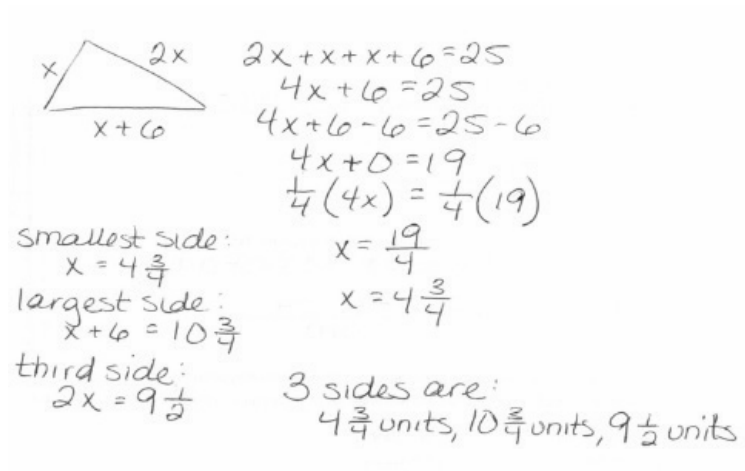 x
2x
x + 6
2x + x + x + 6 = 25
4x + 6 = 25
4x + 6 - 6 = 25 - 6
4x + 0 = 19
1/4 (4x) = 1/4 (19)
x = 19/4
x = 4 3/4
smallest side:
x = 4 3/4
largest side:
x + 6 = 10 3/4
third side:
2x = 9 1/2
3 sides are:
4 3/4 units, 10 3/4 units, 9 1/2 units